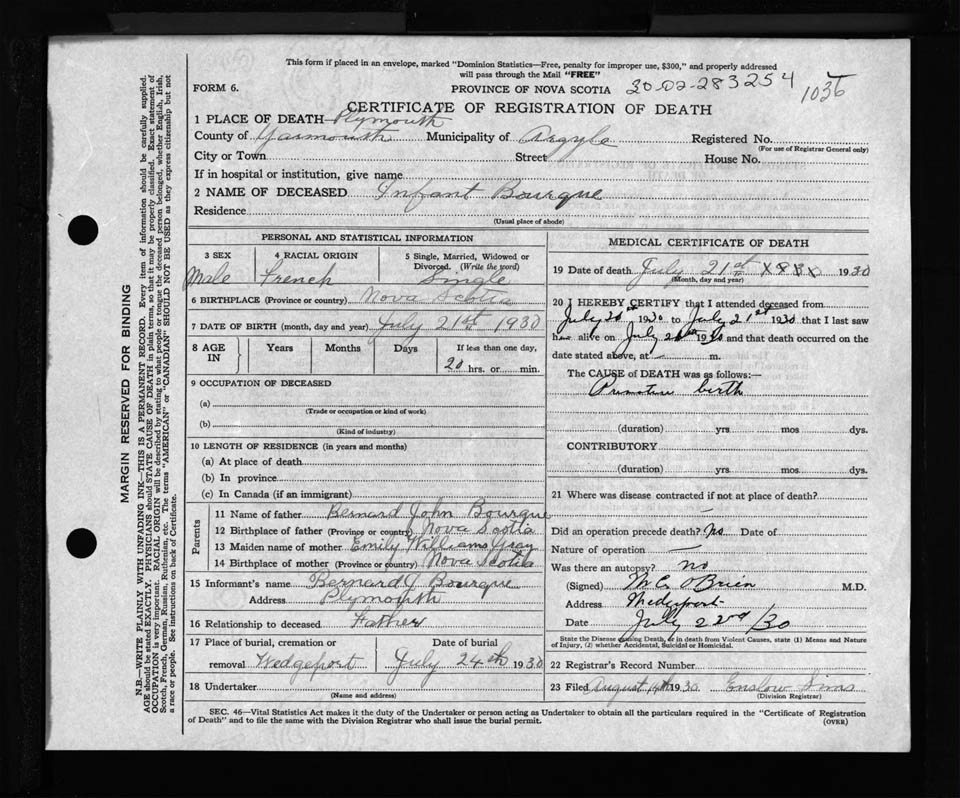 This form if placed in an envelope, marked "Dominion Statistics—Free, penalty for improper use, $300," and properly addressed
will pass through the Mail "FREE"
FORM 6. PROVINCE OF NOVA SCOTIA 30-02-283254 1036
CERTIFICATE OF REGISTRATION OF DEATH
1 PLACE OF DEATH Plymouth
County of Yarmouth Municipality of Argyle Registered No.
(For use of Registrar General only)
City or Town Street House No.
If in hospital or institution, give name
2 NAME OF DECEASED Infant Bourque
Residence
(Usual place of abode)
PERSONAL AND STATISTICAL INFORMATION
3 SEX 4 RACIAL ORIGIN 5 Single, Married, Widowed or
Divorced. (Write the word)
Male French Single
6 BIRTHPLACE (Province or country) Nova Scotia
7 DATE OF BIRTH (month, day and year) July 21st 1930
8 AGE IN Years Months Days If less than one day,
20 hrs. or min.
9 OCCUPATION OF DECEASED
(a)
(Trade or occupation or kind of work)
(b)
(Kind of industry)
10 LENGTH OF RESIDENCE (in years and months)
(a) At place of death
(b) In province
(c) In Canada (if an immigrant)
Parents
11 Name of father Bernard John Bourque
12 Birthplace of father (Province or country) Nova Scotia
13 Maiden name of mother Emily Williams Gray
14 Birthplace of mother (Province or country) Nova Scotia
15 Informant's name Bernard J Bourque
Address Plymouth
16 Relationship to deceased Father
17 Place of burial, cremation or Date of burial
removal Wedgeport July 24th 1930
18 Undertaker
(Name and address)
MEDICAL CERTIFICATE OF DEATH
19 Date of death July 21st 1930
(Month, day and year)
20 I HEREBY CERTIFY that I attended deceased from
July 20th 1930 to July 21st 1930 that I last saw
h alive on July 20th 1930 and that death occurred on the
date stated above, at m.
The CAUSE of DEATH was as follows:—
Premature birth
(duration) yrs. mos dys.
CONTRIBUTORY
(duration) yrs. mos. dys.
21 Where was disease contracted if not at place of death?
Did an operation precede death? No Date of
Nature of operation —
Was there an autopsy? no
(Signed) M.C. O'Brien M.D.
Address Wedgeport
Date July 22nd/30
State the Disease causing Death, or in death from Violent Causes, state (1) Means and Nature
of Injury, (2) whether Accidental, Suicidal or Homicidal.
22 Registrar's Record Number
23 Filed August 14th 1930 Enslow Sims
(Division Registrar)
SEC. 46—Vital Statistics Act makes it the duty of the Undertaker or person acting as Undertaker to obtain all the particulars required in the "Certificate of Registration
of Death" and to file the same with the Division Registrar who shall issue the burial permit. (OVER)
MARGIN RESERVED FOR BINDING
N.B.—WRITE PLAINLY WITH UNFADING INK—THIS IS A PERMANENT RECORD. Every item of information should be carefully supplied.
AGE should be stated EXACTLY. PHYSICIANS should STATE CAUSE OF DEATH in plain terms, so that it may be properly classified. Exact statement of
OCCUPATION is very important. RACIAL ORIGIN will be described by stating to what people or tongue the deceased person belonged, whether English, Irish,
Scotch, French, German, Russian, Ruthenian, etc. The terms "AMERICAN" or "CANADIAN" SHOULD NOT BE USED as they express citizenship but not
a race or people. See instructions on back of Certificate.